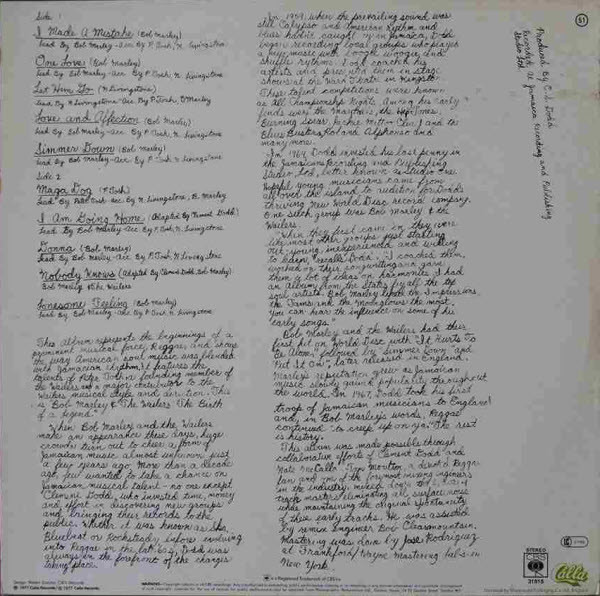 Side 1
I Made A Mistake (Bob Marley)
Lead By Bob Marley - Acc. By P. Tosh, N. Livingstone
One Love (Bob Marley)
Lead By Bob Marley - Acc. By P. Tosh, N. Livingstone
Let Him Go (N. Livingstone)
Lead By N. Livingstone - Acc. By P. Tosh, B. Marley
Love and Affection (Bob Marley)
Lead By Bob Marley - Acc. By P. Tosh, N. Livingstone
Simmer Down (Bob Marley)
Lead By Bob Marley - Acc. By P. Tosh, N. Livingstone
Side 2
Maga Dog (P. Tosh)
Lead By Peter Tosh - Acc. by N. Livingstone, B. Marley
I Am Going Home (Adapted By Clement Dodd)
Lead By Bob Marley - Acc. By P. Tosh, N. Livingstone
Donna (Bob Marley)
Lead By Bob Marley - Acc. By P. Tosh, N. Livingstone
Nobody Knows (Adapted By Clement Dodd, Bob Marley)
Bob Marley & The Wailers
Lonesome Feeling (Bob Marley)
Lead By Bob Marley - Acc. By P. Tosh, N. Livingstone
This album represents the beginnings of a
prominent musical force, Reggae, and shows
the way American soul music was blended
with Jamaican rhythms. It features the
talents of Peter Tosh, a founding member of
the Wailers and a major contributor to the
Wailers musical style and direction. This
is Bob Marley & The Wailers "The Birth
of a legend."
When Bob Marley and the Wailers
make an appearance these days, huge
crowds turn out to cheer a form of
Jamaican music almost unknown just
a few years ago. More than a decade
ago, few wanted to take a chance on
Jamaican musical talent - no one except
Clement Dodd, who invested time, money
and effort in discovering new groups
and bringing their records to the
public. Whether it was known as Ska,
Bluebeat or Rocksteady, before evolving
into Reggae in the late 60s, Dodd was
always in the forefront of the changes
taking place.
In 1959, when the prevailing sound was
still Calypso and American Rhythm and
blues hadn't caught on in Jamaica, Dodd
began recording local groups who played
a new music with boogie woogie, and
shuffle rhythms. Dodd coached his
artists and presented them in stage
shows at the Ward Theatre in Kingston.
These talent competitions were known
as All Championship Nights. Among his early
finds were the Maytones, the Heptones,
Burning Spear, Jackie Mittoo (sic) and the
Blues Busters, Roland Alphonso and
many more.
In 1964, Dodd invested his last penny in
the Jamaican Recording and Publishing
Studio Ltd, better known as Studio One.
Hopeful young musicians came from
all over the island to audition for Dodd's
thriving New World Disc record company.
One such group was Bob Marley & the
Wailers.
"When they first came in they were
like most other groups just starting
out - young, inexperienced and willing
to learn," recalls Dodd. "I coached them,
worked on their songwriting and gave
them a lot of ideas on harmonies. I had
an album from the States by all the top
soul artists. Bob Marley liked the Impressions,
the Tams and the Moonglows the most.
You can hear the influence on some of his
early songs."
Bob Marley and the Wailers had their
first hit on World Disc with "It Hurts To
Be Alone," followed by "Simmer Down" and
"Put It On", later released in England.
Marley's reputation grew as Jamaican
music slowly gained popularity throughout
the world. In 1967, Dodd took his first
troop of Jamaican musicians to England
and, in Bob Marley's words, Reggae
continued "to creep up on ya." The rest
is history.
This album was made possible through
collaborative efforts of Clement Dodd and
Nate McCalla. Tom Moulton, a devoted Reggae
fan and one of the foremost mixing engineers
in the industry, mixed down the
track masters eliminating all surface noise
while maintaining the original spontaneity
of these early tracks. He was assisted
by remix engineer Bob Clearmountain.
Mastering was done by Jose Rodriguez
at Frankford/Wayne Mastering Labs in
New York.
Produced by C.S. Dodd
Recorded at Jamaica Recording and Publishing
Studio Ltd.
51
STEREO
CBS
31915
Calla
℗ 1977 Calla Records / © 1977 Calla Records
WARNING:
is a Registered Trademark of CBS Inc.